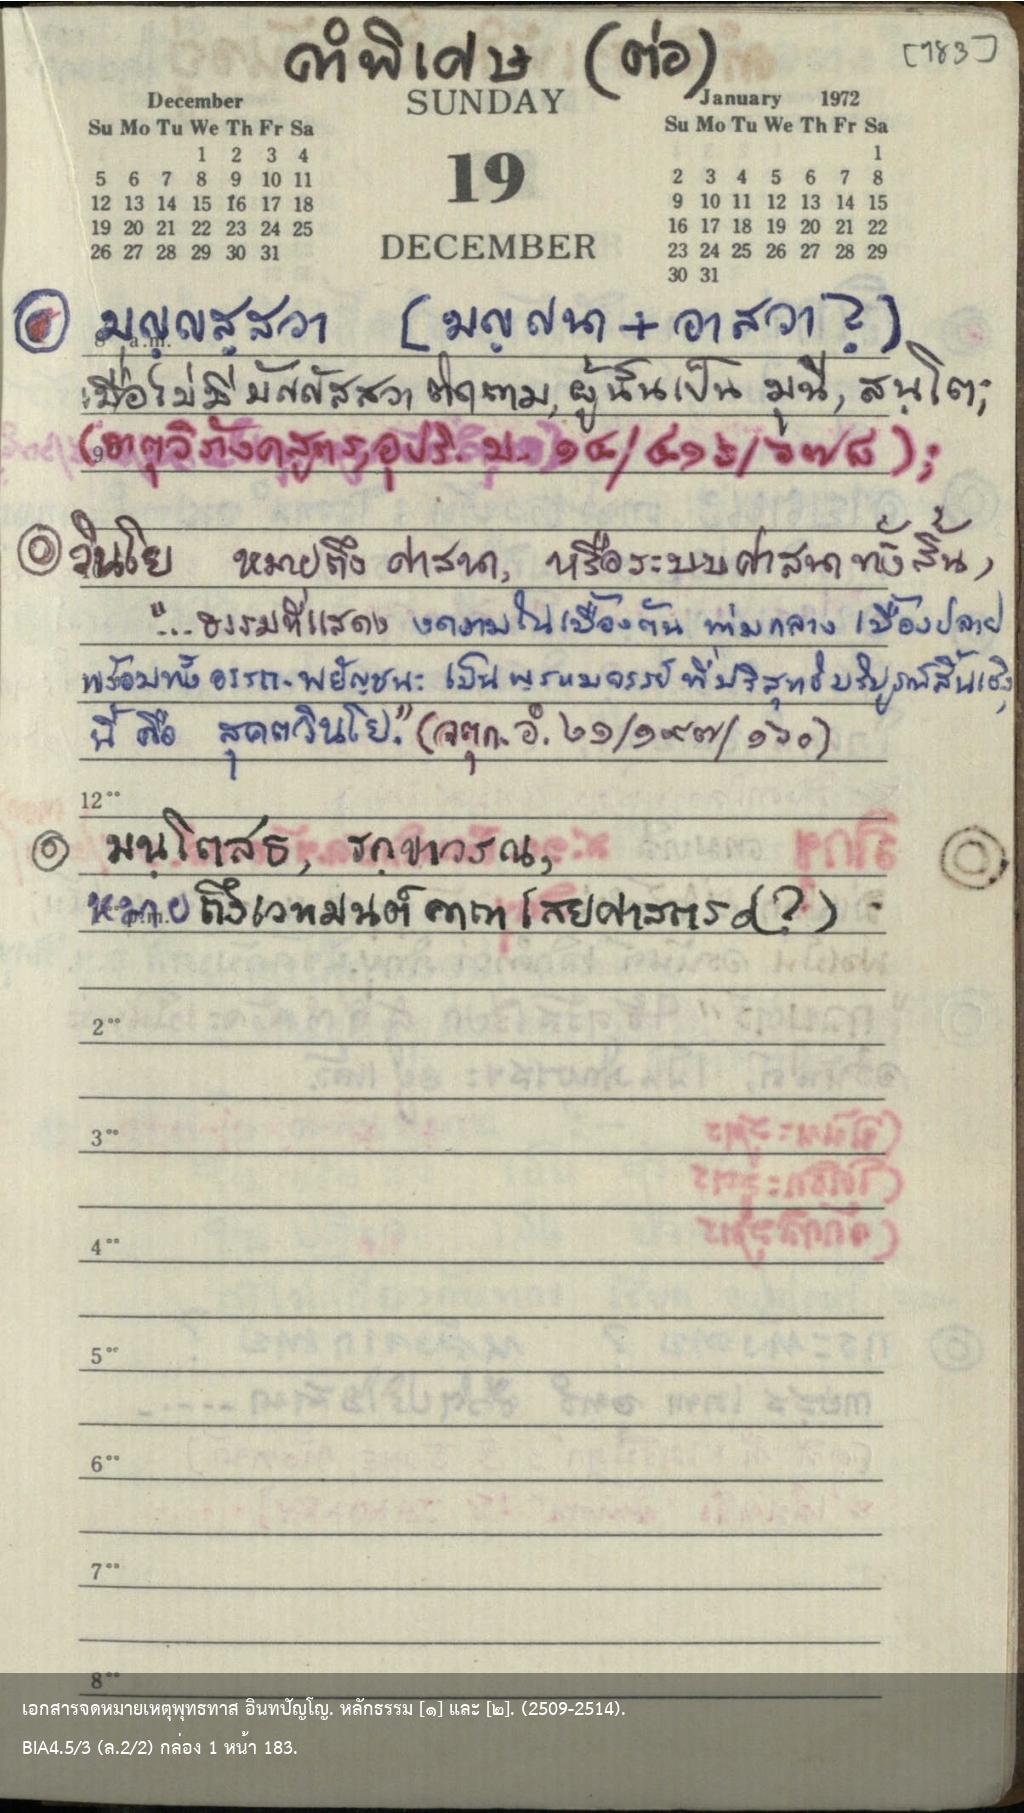 คำพิเศษ (ต่อ)
[183]
December
Su Mo Tu We Th Fr Sa
1 2 3 4
5 6 7 8 9 10 11
12 13 14 15 16 17 18
19 20 21 22 23 24 25
26 27 28 29 30 31
SUNDAY
19
DECEMBER
January 1972
Su Mo Tu We Th Fr Sa
1
2 3 4 5 6 7 8
9 10 11 12 13 14 15
16 17 18 19 20 21 22
23 24 25 26 27 28 29
30 31
มญฺญสฺสวา (มญฺญนา + อาสวา?)
8 a.m.
เมื่อไม่มี มัญญัสสวา ผู้นั้นเป็น มุนี, สนฺโต;
9
(ธาตุวิภังคสูตร, อุปริ. ม. ๑๔/๔๑๖/๖๗๘);
วินโย หมายถึง ศาสนา, หรือระบบศาสนาทั้งสิ้น,
"...ธรรมที่แสดง งดงามในเบื้องต้น ท่ามกลาง เบื้องปลาย
พร้อมทั้ง อรรถ-พยัญชนะ เป็น พรหมจรรย์ ที่บริสุทธิ์บริบูรณ์สิ้นเชิง,
นี้ คือ สุคตวินโย." (จตุก. อํ. ๒๑/๑๙๗/๑๖๐)
12
มนฺโตสธ, รกฺขาวรณ,
หมายถึงเวทมนต์ คาถา ไสยศาสตร์ (?)
2
3
4
5
6
7
8
เอกสารจดหมายเหตุพุทธทาส อินทปัญโญ. หลักธรรม [๑] และ [๒]. (2509-2514).
BIA4.5/3 (ล.2/2) กล่อง 1 หน้า 183.